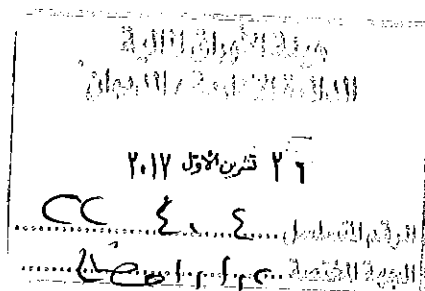 هيئة الأوراق المالية
الدائرة الإدارية / الديوان
٢٦ تشرين الأول ٢٠١٧
الرقم المتسلسل ٤٠٤ CC
الجهة المختصة